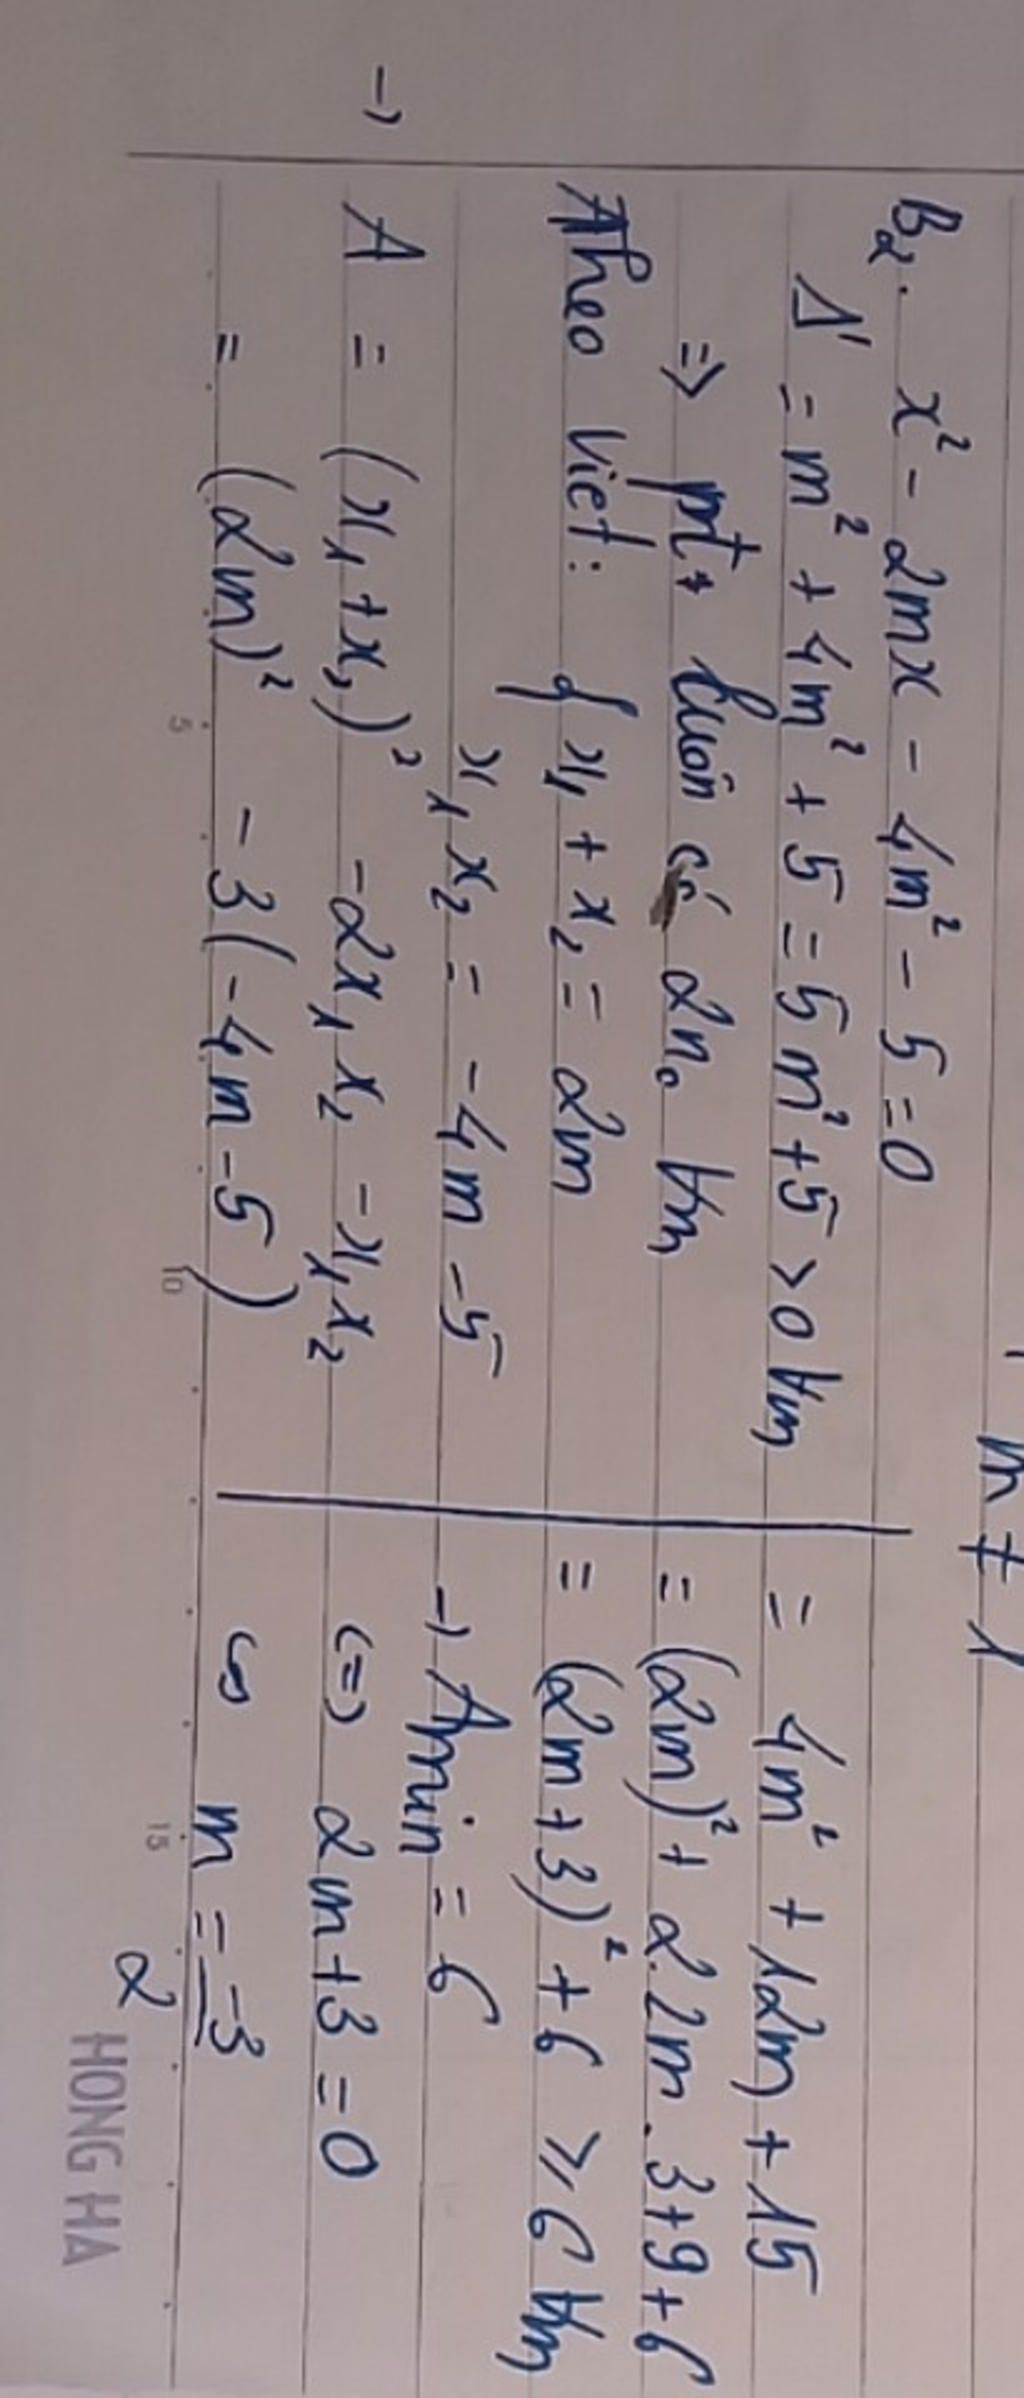 m ≠ 1
B2. x² - 2mx - 4m² - 5 = 0
Δ' = m² + 4m² + 5 = 5m² + 5 > 0 ∀m
=> pt luôn có 2 n₀ ∀m
Theo Viet: { x₁ + x₂ = 2m
x₁x₂ = -4m - 5
→ A = (x₁ + x₂)² - 2x₁x₂ - x₁x₂
= (2m)² - 3(-4m - 5)
= 4m² + 12m + 15
= (2m)² + 2.2m.3 + 9 + 6
= (2m + 3)² + 6 ≥ 6 ∀m
→ Amin = 6
<=> 2m + 3 = 0
<=> m = -3/2
5 10 15
HONG HA